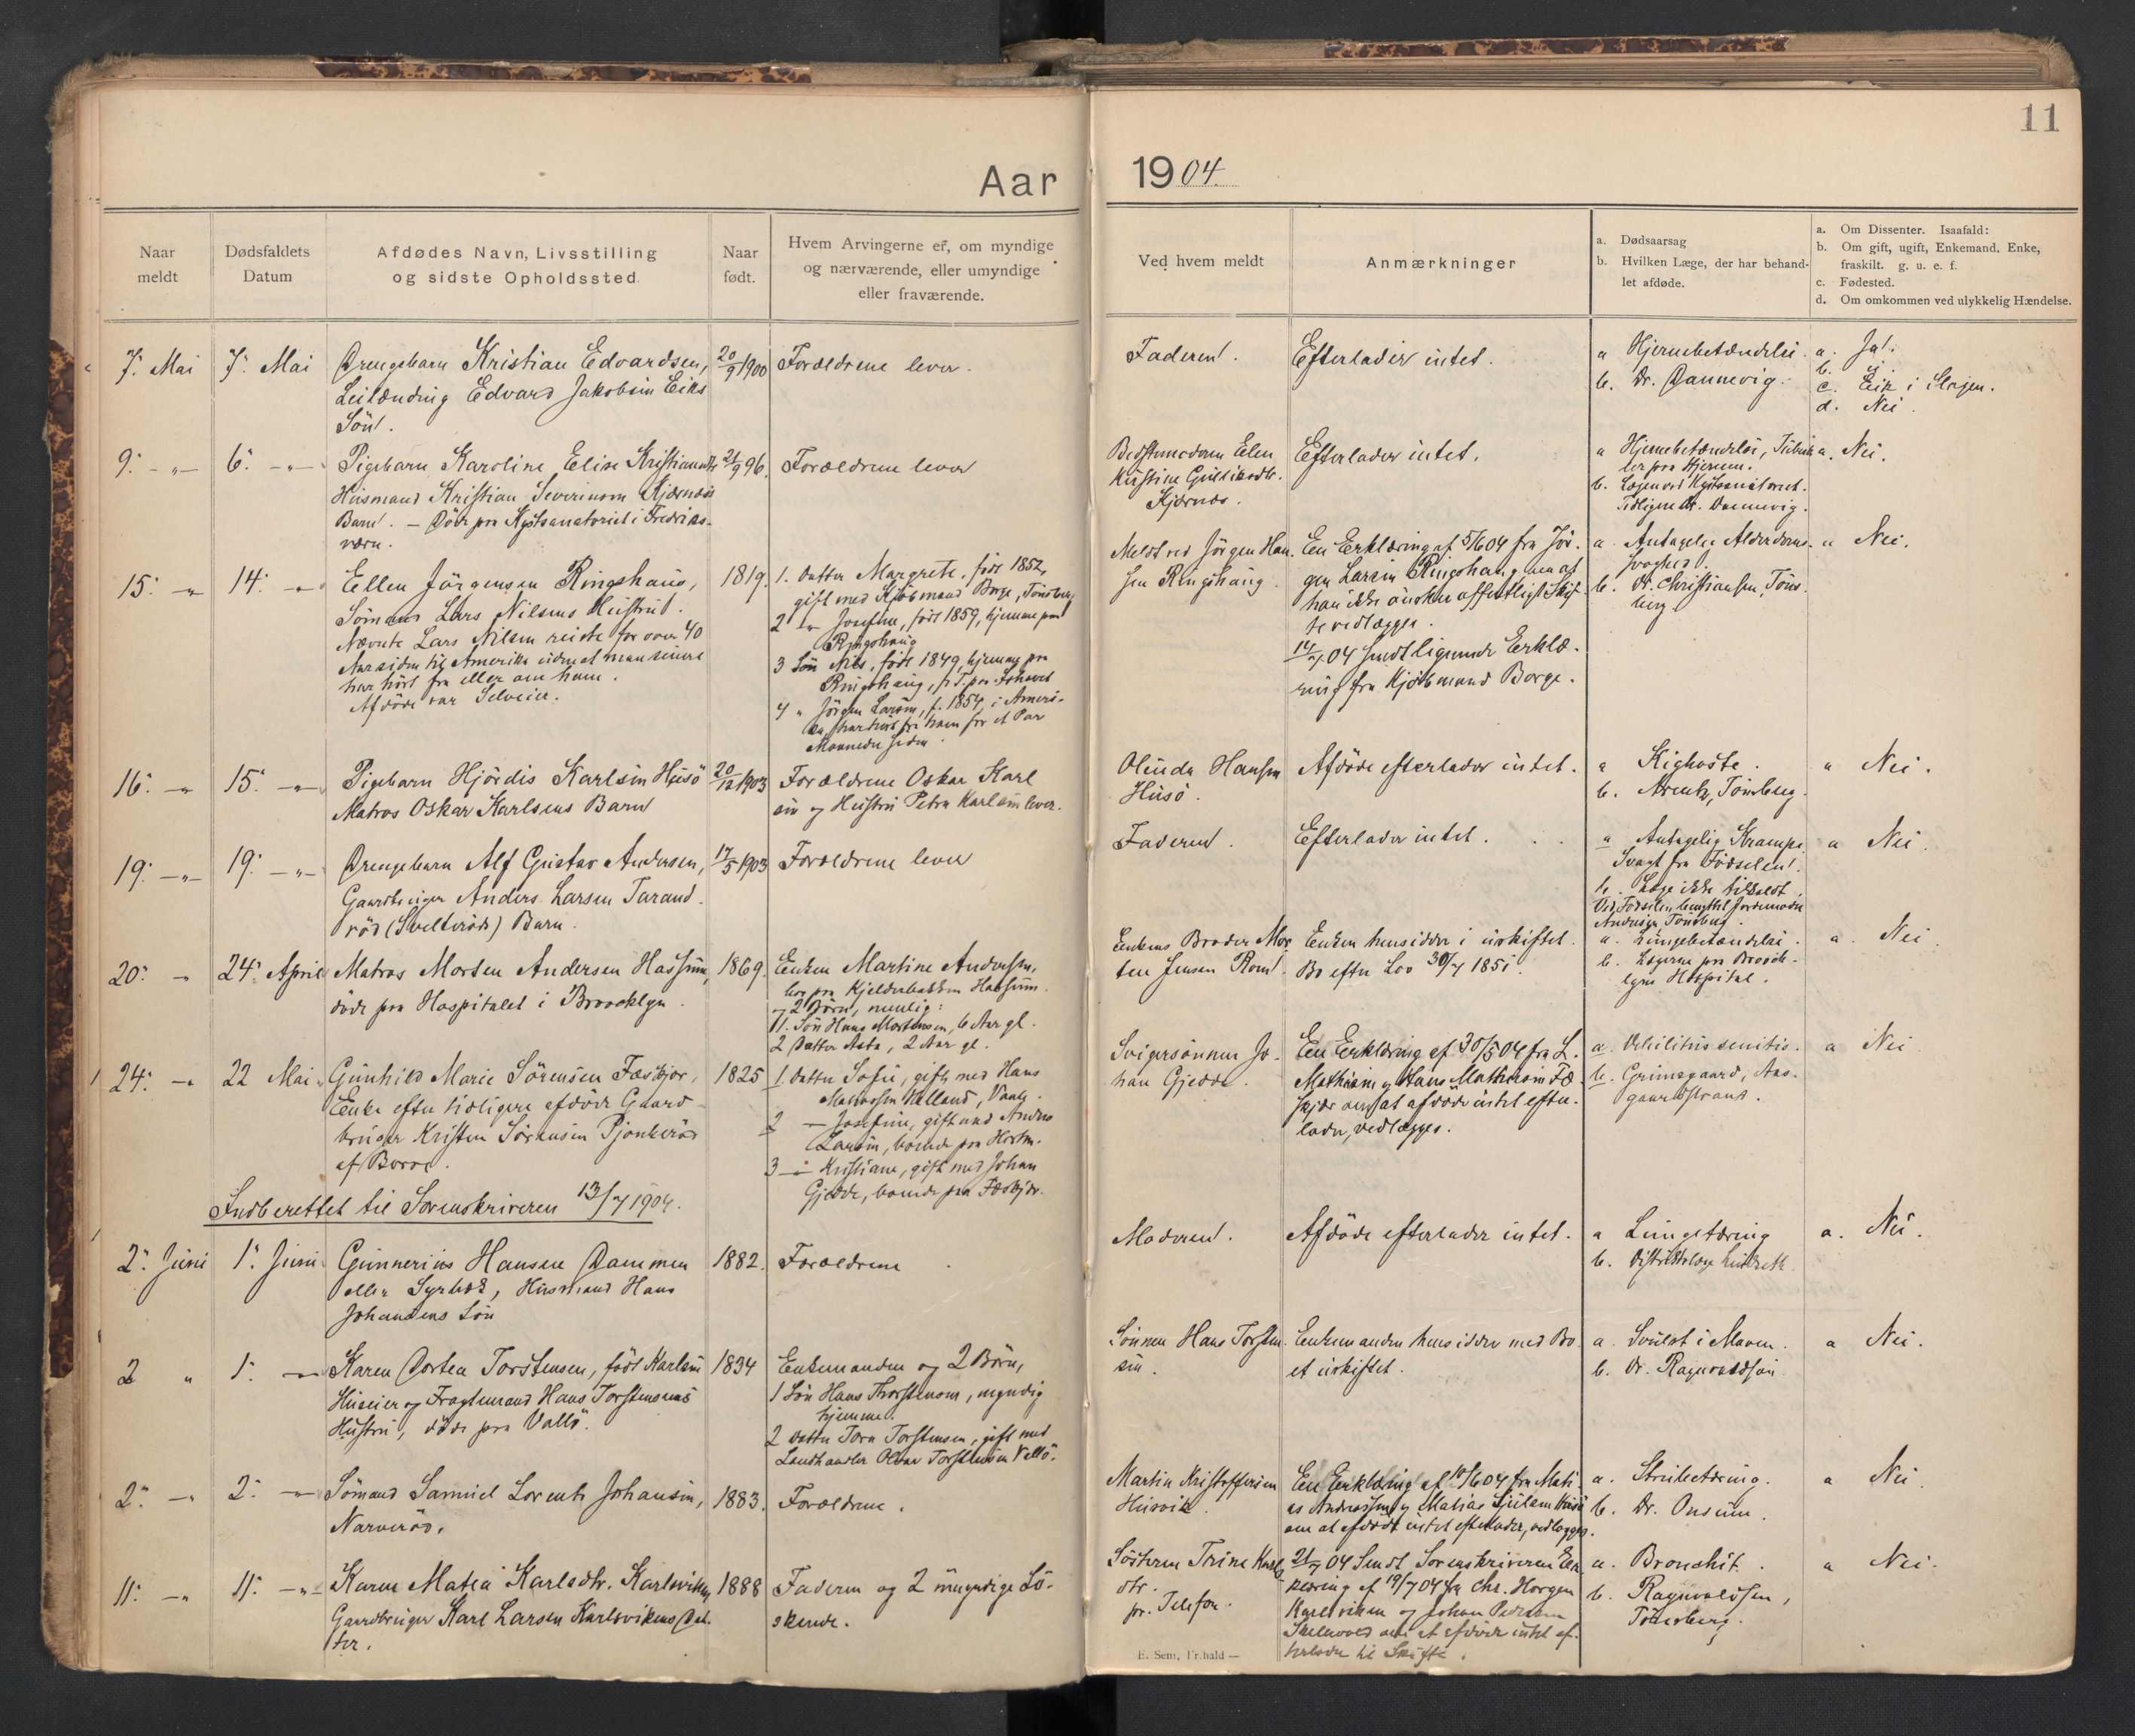 11
Aar 1904.
Naar meldt
Dødsfaldets Datum
Afdødes Navn, Livsstilling og sidste Opholdssted.
Naar født.
Hvem Arvingerne er, om myndige og nærværende, eller umyndige eller fraværende.
Ved hvem meldt
Anmærkninger
a. Dødsaarsag
b. Hvilken Læge, der har behandlet afdøde.
a. Om Dissenter. Isaafald:
b. Om gift, ugift, Enkemand, Enke, fraskilt. g. u. e. f.
c. Fødested.
d. Om omkommen ved ulykkelig Hændelse.
7. Mai
7. Mai
Drengebarn Kristian Edvardsen,
Leilænding Edvard Jakobsen Eiks
Søn.
20/9 1900
Forældrene lever.
Faderen.
Efterlader intet.
a Hjernebetændelse.
b. Dr. Dannevig.
a. Ja.
b.
c. Eik i Slagen.
d. Nei.
9. -"-
6. -"-
Pigebarn Karoline Elise Kristiansdtr
Husmand Kristian Severinsen Kjærnæs
Barn. - Døde paa Kystsanatoriet i Fredriks-
værn.
21/9 96.
Forældrene lever
Bedstemoderen Elen
Kristine Gulliksdtr.
Kjærnæs.
Efterlader intet.
a Hjernebetændelse, Tuberk-
ler paa Hjernen.
b. Lægen ved Kystsanatoriet.
Tidligere Dr. Dannevig.
a. Nei.
15. -"-
14. -"-
Ellen Jørgensen Ringshaug,
Sømand Lars Nilsens Hustru.
Nævnte Lars Nilsen reiste for over 40
Aar siden til Amerika uden at man senere
har hørt fra eller om ham.
Afdøde var Selveier.
1819.
1. Datter Margrete, født 1852,
gift med Kjøbmand Borge, Tønsberg
2 -"- Josefine, født 1859, hjemme paa
Ringshaug
3 Søn Nils, født 1849, hjemme paa
Ringshaug, p. T. paa Ishavet
4 " Jørgen Larsen, f. 1854, i Ameri-
ka, har hørt fra ham for et Par
Maaneder siden.
Meldt ved Jørgen Han-
sen Ringshaug.
En Erklæring af 5/6 04 fra Jør-
gen Larsen Ringshaug om at
han ikke ønsker offentligt Skif-
te vedlægges.
14/7 04 sendt lignende Erklæ-
ring fra Kjøbmand Borge.
a. Antagelig Alderdoms-
svaghed.
b. Dr. Christiansen, Tøns-
berg.
a Nei.
16. -"-
15. -"-
Pigebarn Hjørdis Karlsen Husø
Matros Oskar Karlsens Barn
20/12 1903
Forældrene Oskar Karl-
sen og Hustru Petra Karlsen lever.
Olinda Hansen
Husø.
Afdøde efterlader intet.
a Kighoste.
b. Arentz, Tønsberg.
a Nei.
19. -"-
19. -"-
Drengebarn Alf Gustav Andersen,
Gaardbruger Anders Larsen Tarand-
rød (Svelterød) Barn.
17/5 1903
Forældrene lever
Faderen.
Efterlader intet.
a Antagelig Krampe.
Svagt fra Fødselen.
b. Læge ikke tilkaldt.
Ved Fødselen benyttet Jordemoder
Andersen, Tønsberg.
a Nei.
20. "
24. April
Matros Morten Andersen Hassum,
døde paa Hospitalet i Broocklyn.
1869.
Enken Martine Andersen,
bor paa Kjelderbakken Hassum.
og 2 Børn, nemlig:
1. Søn Hans Mortensen, 6 Aar gl.
2 Datter Asta, 2 Aar gl.
Enkens Broder Mor-
ten Jensen Rom.
Enken hensidder i uskiftet
Bo efter Lov 30/7 1851.
a. Lungebetændelse.
b. Lægerne paa Broock-
lyns Hospital.
a. Nei.
24. -"-
22 Mai
Gunhild Marie Sørensen Fæskjær,
Enke efter tidligere afdøde Gaard-
bruger Kristen Sørensen Pjonkerød
af Borre.
1825
1. Datter Sofie, gift med Hans
Mathissen Welland, Vaale.
2 -"- Josefine, gift med Anders
Larsen, boende paa Horten.
3 -"- Kristiane, gift med Johan
Gjedde, boende paa Fæskjær.
Svigersønnen Jo-
han Gjedde.
En Erklæring af 30/5 04 fra L.
Mathisen og Hans Mathisen Fæ-
skjær om at afdøde intet efter-
lader, vedlægges.
a. Debilitas senilis.
b. Grimsgaard, Aas-
gaardstrand.
a Nei
Indberettet til Sorenskriveren 13/7 1904.
2. Juni
1. Juni
Gunnerius Hansen Dammen
eller Syrbek, Husmand Hans
Johansens Søn
1882.
Forældrene
Moderen.
Afdøde efterlader intet.
a Lungetæring
b. Distriktslæge
a. Nei.
2 "
1. -"-
Karen Dortea Torstensen, født Karlsen
Huseier og Fragtemand Hans Torstensens
Hustru, døde paa Vallø.
1834
Enkemanden og 2 Børn,
1 Søn Hans Thorstensen, myndig
hjemme.
2 Datter Tora Torstensen, gift med
Landhandler Oskar Torstensen Vallø.
Sønnen Hans Torsten-
sen.
Enkemanden hensidder med Bo-
et uskiftet.
a. Svulst i Maven.
b. Dr. Ragnvaldsen.
a Nei.
2. -"-
2. -"-
Sømand Samuel Lorents Johansen,
Narverød.
1883.
Forældrene.
Martin Kristoffersen
Husvik
En Erklæring af 10/6 04 fra Mati-
as Andreassen og Matias Husø
om at afdøde intet efterlader, vedlægges.
a. Strubetæring.
b. Dr. Onsum.
a Nei
11. -"-
11. -"-
Karen Matea Karlsdtr. Karlsviken,
Gaardbruger Karl Larsen Karlsvikens Dat-
ter.
1888
Faderen og 2 umyndige Sø-
skende.
Søsteren Trine Karls-
dtr.
pr. Telefon.
21/7 04 Sendt Sorenskriveren Er-
klæring af 19/7 04 fra Chr. Horgen
Karlsviken og Johan Pedersen
om at afdøde intet ef-
terlader til Skifte.
a. Bronchit.
b. Ragnvaldsen,
Tønsberg.
a Nei.
E. Sem, Fr.hald —